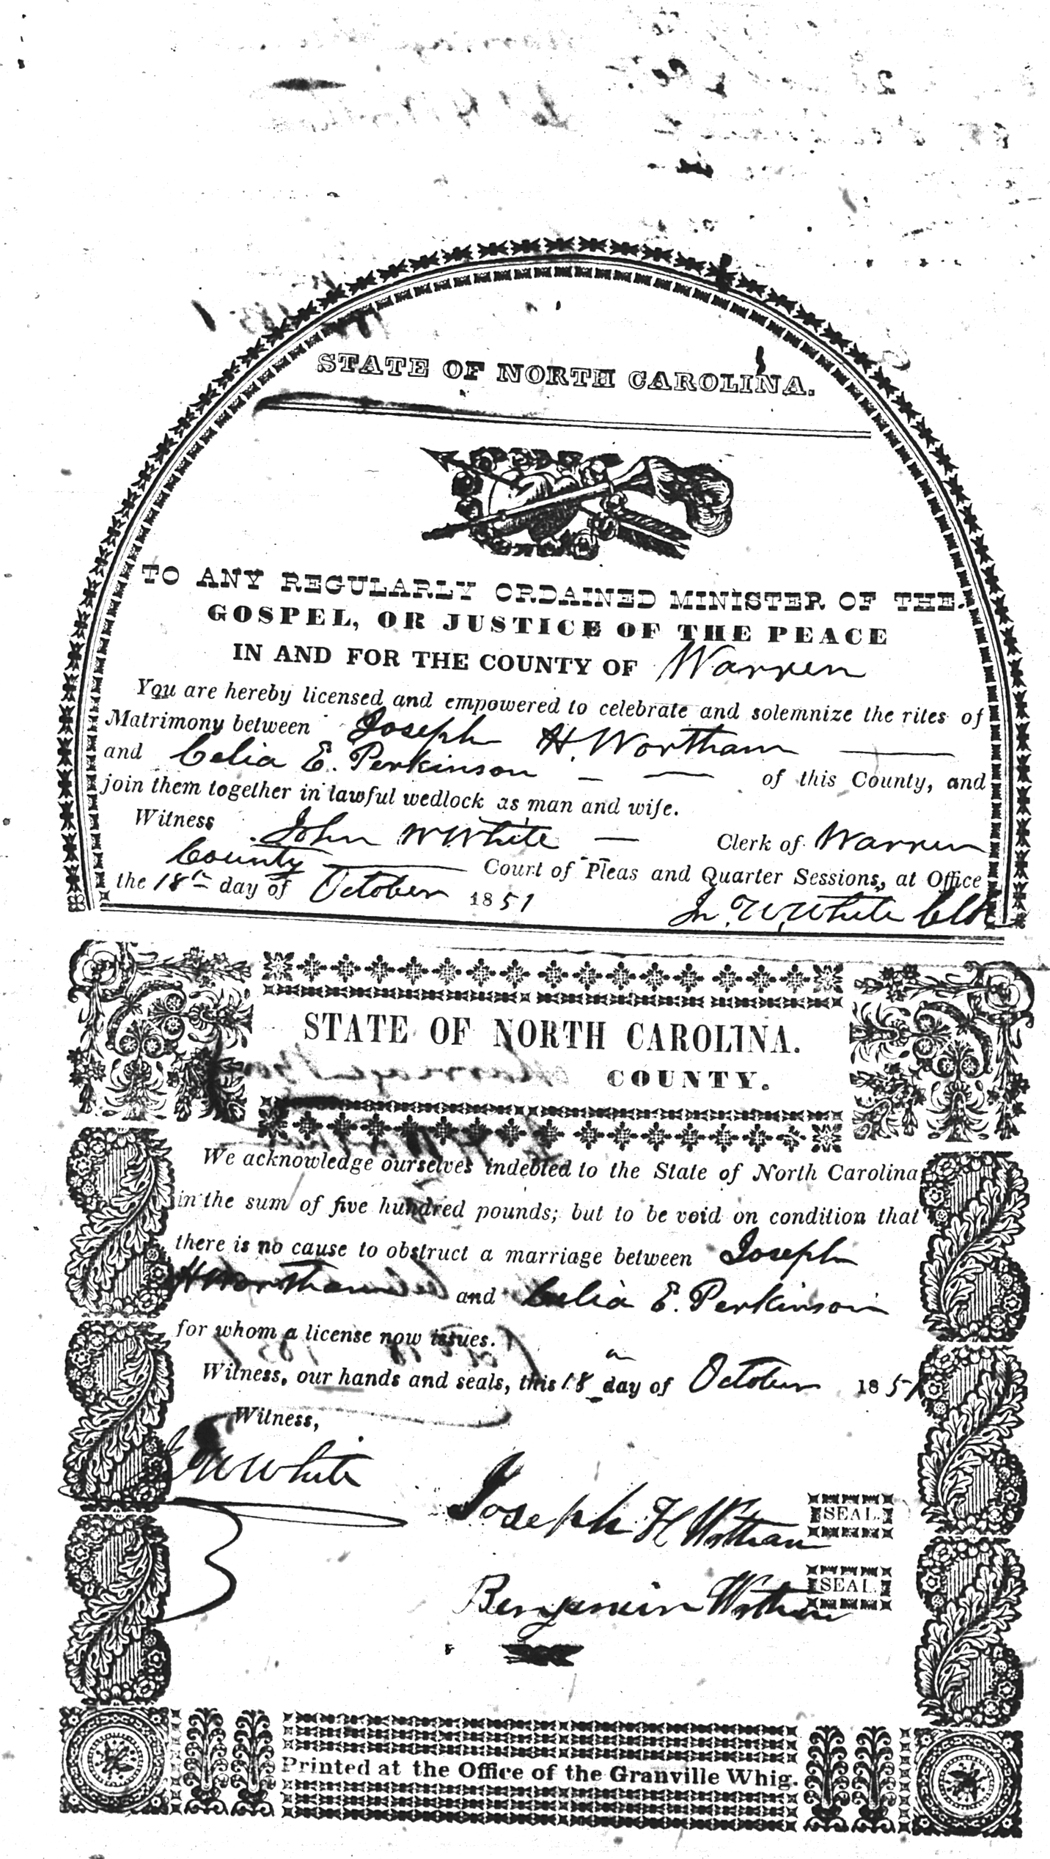 STATE OF NORTH CAROLINA.
TO ANY REGULARLY ORDAINED MINISTER OF THE
GOSPEL, OR JUSTICE OF THE PEACE
IN AND FOR THE COUNTY OF Warren
You are hereby licensed and empowered to celebrate and solemnize the rites of
Matrimony between Joseph H. Wortham
and Celia E. Perkinson of this County, and
join them together in lawful wedlock as man and wife.
Witness John W. White Clerk of Warren
County Court of Pleas and Quarter Sessions, at Office
the 18th day of October 1851
Jn. W. White Clk
STATE OF NORTH CAROLINA.
COUNTY.
We acknowledge ourselves indebted to the State of North Carolina
in the sum of five hundred pounds; but to be void on condition that
there is no cause to obstruct a marriage between Joseph
H Wortham and Celia E. Perkinson
for whom a license now issues.
Witness, our hands and seals, this 18 day of October 1851
Witness,
J W White
Joseph H Wortham SEAL.
Benjamin Wortham SEAL.
Printed at the Office of the Granville Whig.